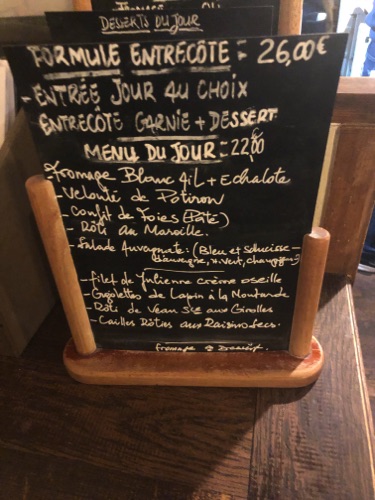 DESSERTS DU JOUR
FORMULE ENTRECÔTE = 26,00€
- ENTRÉE JOUR AU CHOIX
ENTRECÔTE GARNIE + DESSERT
MENU DU JOUR = 22,00
- fromage Blanc Ail + Echalote
- Velouté de Potiron
- Confit de foies (Pâté)
- Rôti au Maroille.
- Salade Auvergnate: (Bleu et Saucisse
d'auvergne, H. Vert, champignons)
- filet de Julienne crème oseille
- Gigolettes de Lapin à la Moutarde
- Rôti de Veau sce aux Girolles
- Cailles Rôties aux Raisins secs.
fromage ou Dessert.